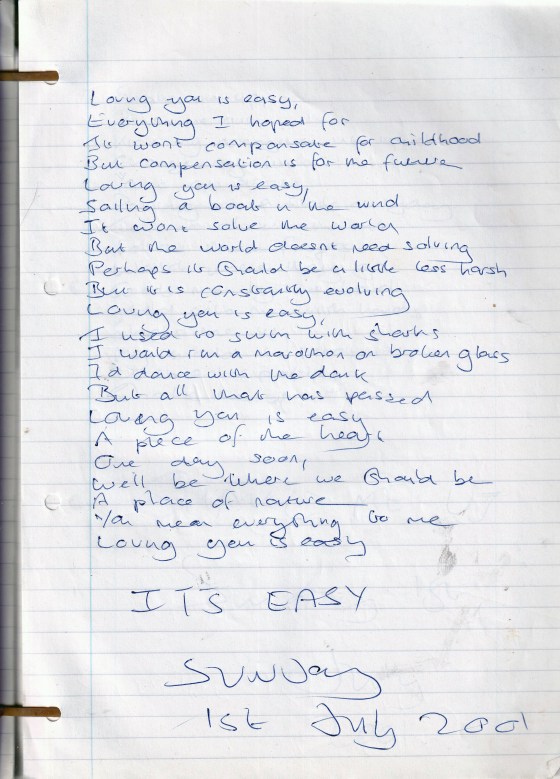 Loving you is easy,
Everything I hoped for
It wont compensate for childhood
But compensation is for the future
Loving you is easy,
Sailing a boat in the wind
It wont solve the world
But the world doesnt need solving
Perhaps it should be a little less harsh
But it is constantly evolving
Loving you is easy,
I used to swim with sharks
I would run a marathon on broken glass
I'd dance with the dark
But all that has passed
Loving you is easy
A piece of the heart
One day soon,
We'll be where we should be
A place of nature
You mean everything to me
Loving you is easy
ITS EASY
SUNDay
1st July 2001